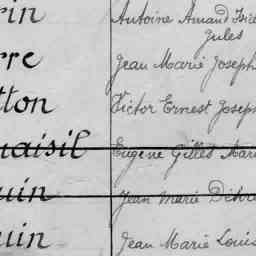 rin Antoine Amand Isid
Jules
rre Jean Marie Joseph
tton Victor Ernest Joseph
naisil Eugène Gilles Mari
uin Jean Marie
uin Jean Marie Louis